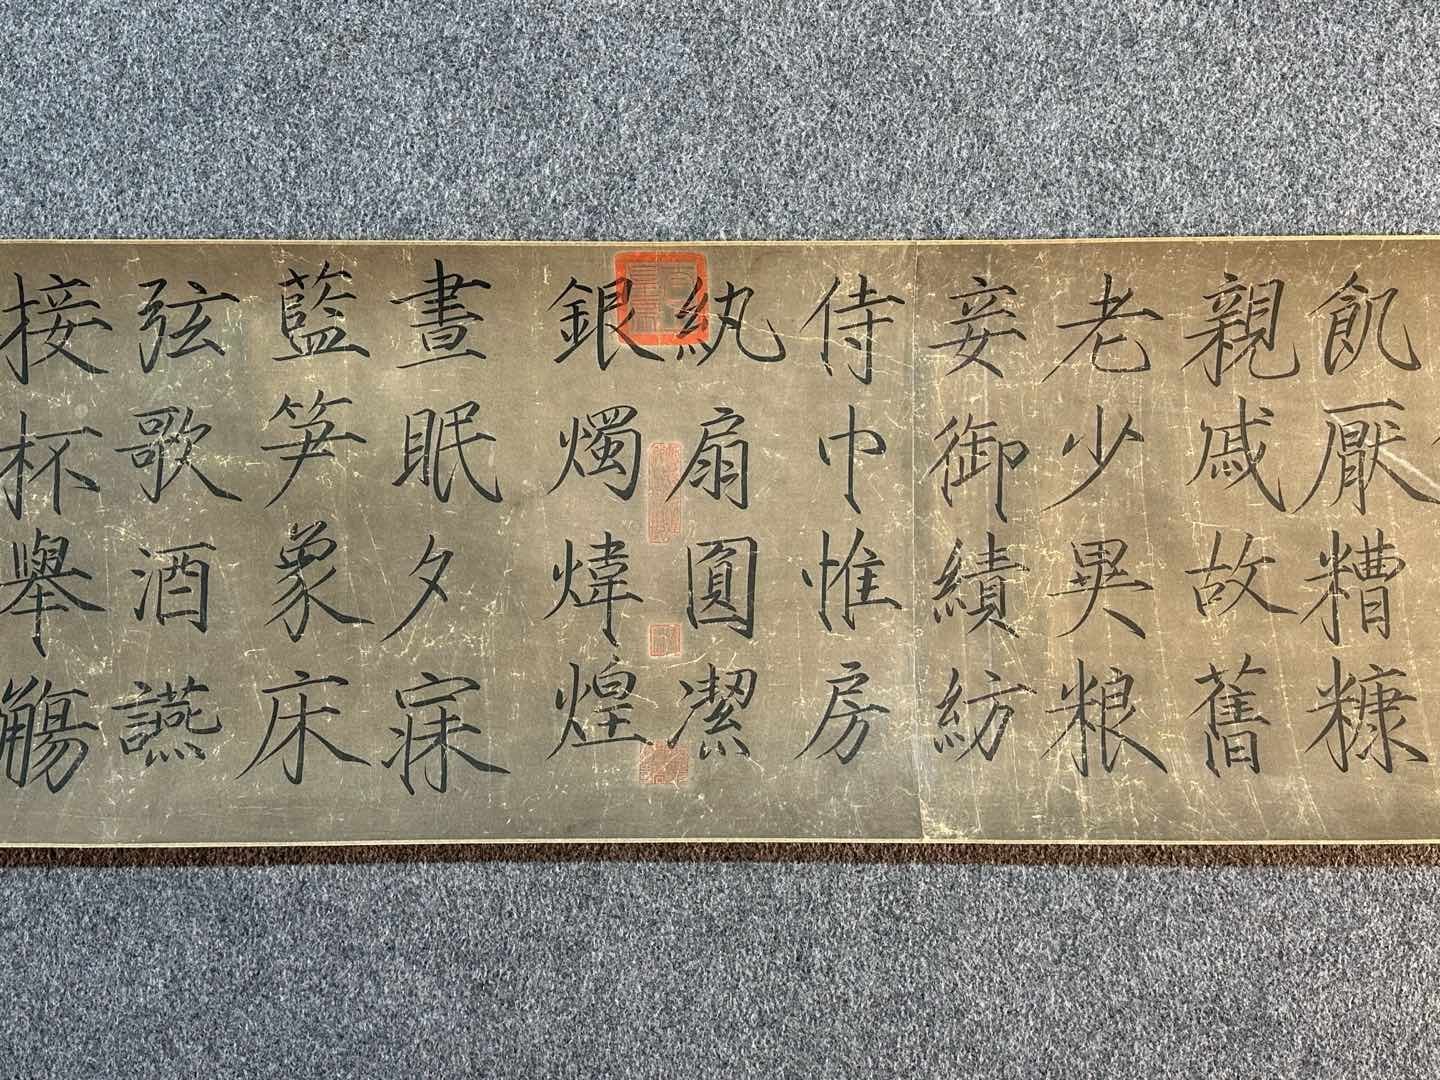 飢厭糟糠
親戚故舊
老少異粮
妾御績紡
侍巾惟房
紈扇圓潔
銀燭煒煌
晝眠夕寐
藍笋象床
弦歌酒讌
接杯舉觴